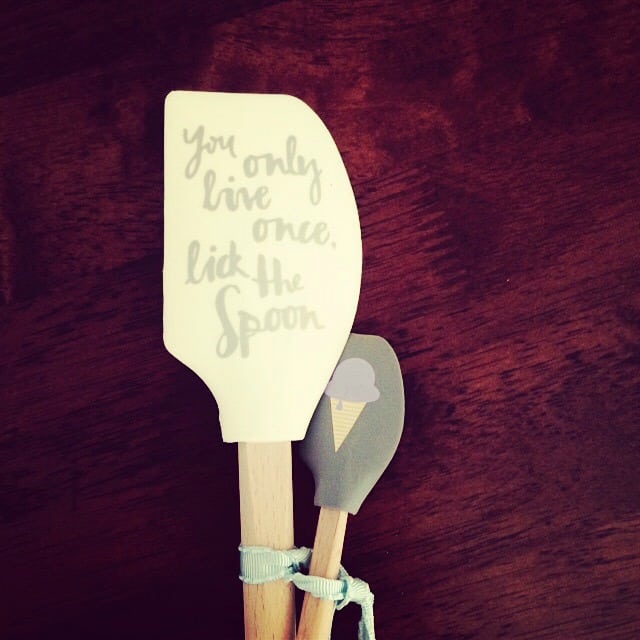 You
only
live
once.
lick the
Spoon